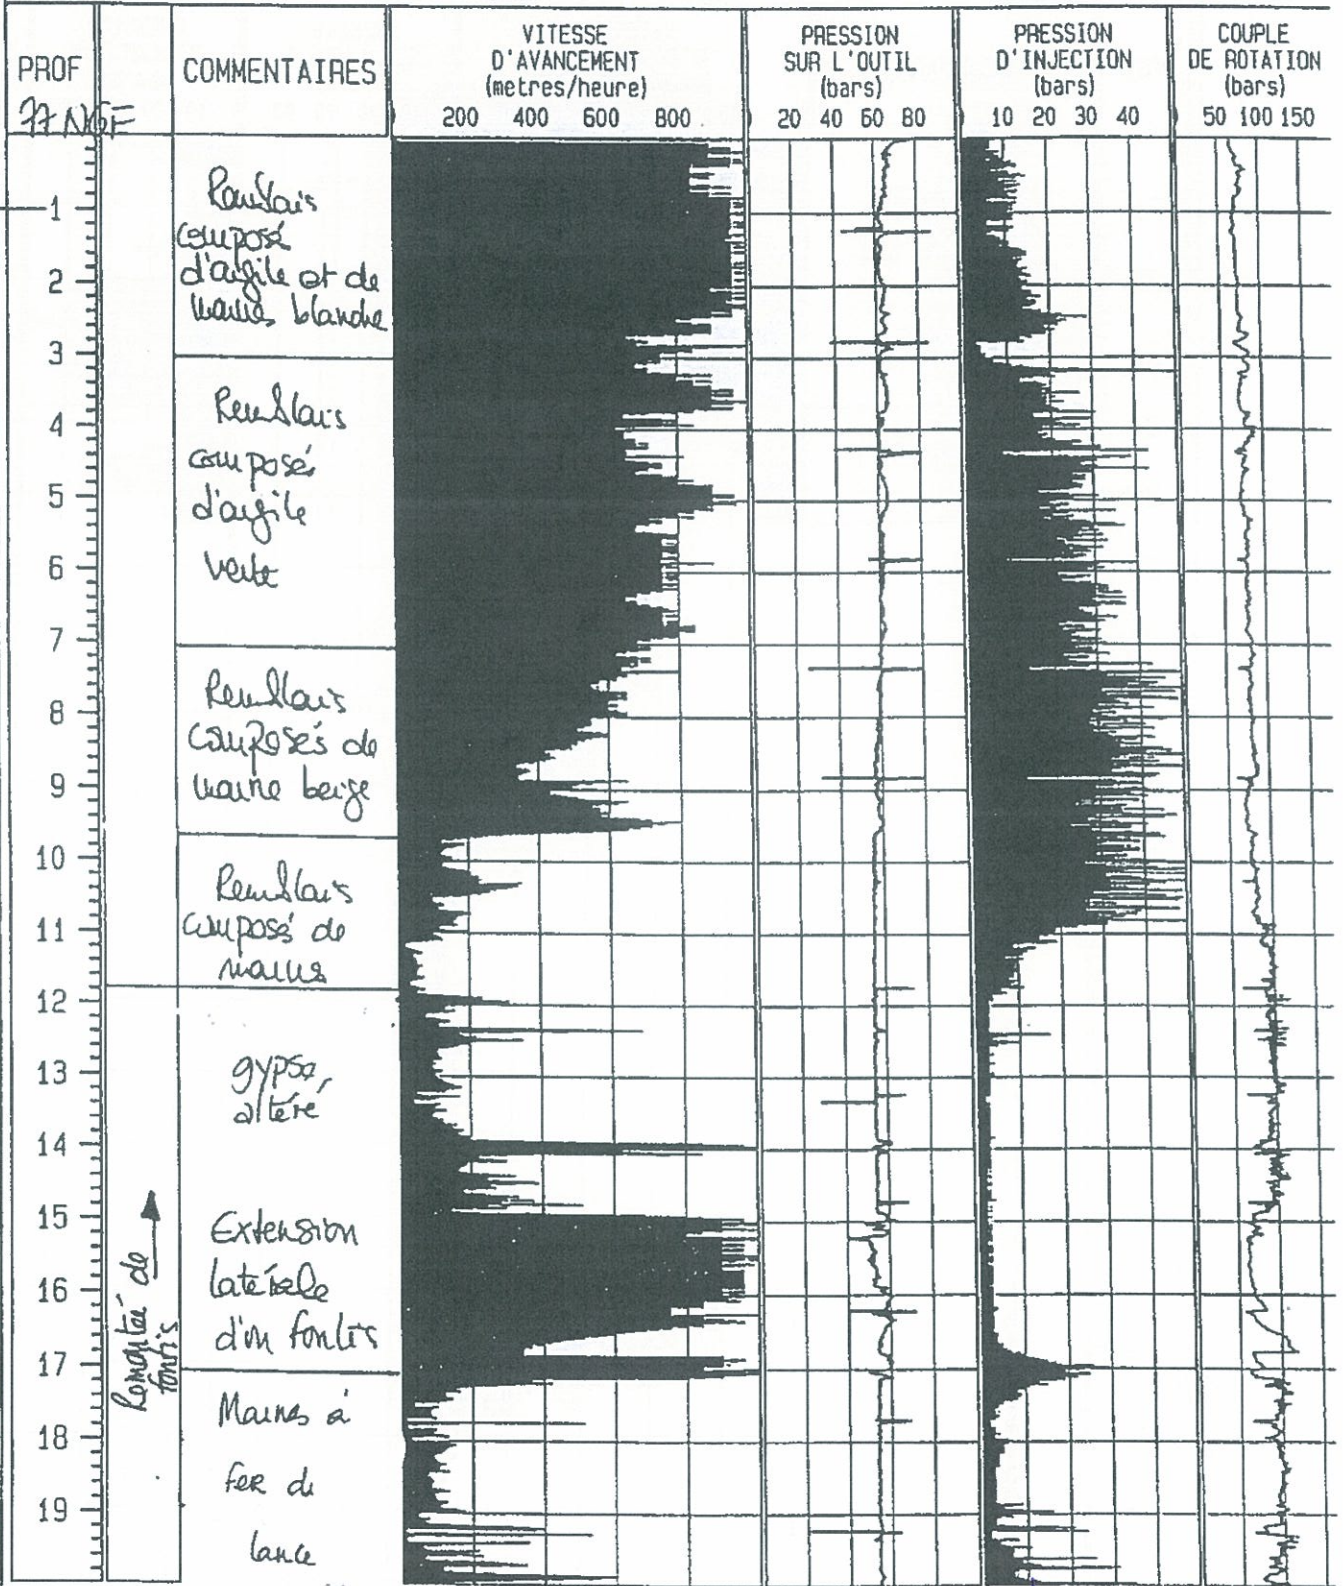 PROF
77 NGF
COMMENTAIRES
VITESSE
D'AVANCEMENT
(metres/heure)
200 400 600 800
PRESSION
SUR L'OUTIL
(bars)
20 40 60 80
PRESSION
D'INJECTION
(bars)
10 20 30 40
COUPLE
DE ROTATION
(bars)
50 100 150
1
2
3
4
5
6
7
8
9
10
11
12
13
14
15
16
17
18
19
Remblais
composé
d'argile et de
marnes blanche
Remblais
composés
d'argile
verte
Remblais
composés de
marne beige
Remblais
composé de
marnes
gypse,
altéré
Extension
latérale
d'un fontis
Remontée de
fontis
Marnes à
fer de
lance